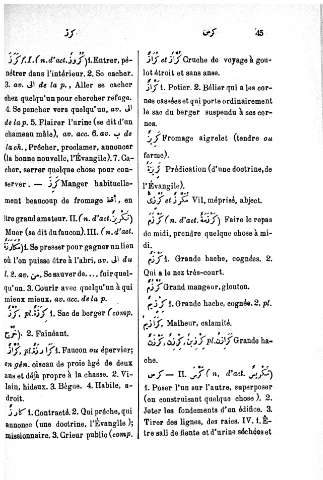 كرز
كَرَزَ f. I. (n. d'act. كُرُوز) 1. Entrer, pé-
nétrer dans l'intérieur. 2. Se cacher.
3. av. الى de la p., Aller se cacher
chez quelqu'un pour chercher refuge.
4. Se pencher vers quelqu'un, av. الى
de la p. 5. Flairer l'urine (se dit d'un
chameau mâle), av. acc. 6. av. ب de
la ch., Prêcher, proclamer, annoncer
(la bonne nouvelle, l'Évangile). 7. Ca-
cher, serrer quelque chose pour con-
server. — كَرِزَ Manger habituelle-
ment beaucoup de fromage أقط, en
être grand amateur. II. (n. d'act. تَكْرِيز)
Muer (se dit du faucon). III. (n. d'act.
مُكَارَزَة) 1. Se presser pour gagner un lieu
où l'on puisse être à l'abri, av. الى du
l. 2. av. من, Se sauver de..., fuir quel-
qu'un. 3. Courir avec quelqu'un à qui
mieux mieux, av. acc. de la p.
كُرْز, pl. 1. Sac de berger (comp.
خرج). 2. Fainéant.
كُرَّز, pl. 1. Faucon ou épervier;
en gén. oiseau de proie âgé de deux
ans et déjà propre à la chasse. 2. Vi-
lain, hideux. 3. Bègue. 4. Habile, a-
droit.
كارز 1. Contracté. 2. Qui prêche, qui
annonce (une doctrine, l'Évangile);
missionnaire. 3. Crieur public (comp.
كرس
45
كُرَاز et كُرَّاز Cruche de voyage à gou-
lot étroit et sans anse.
كَرَّاز 1. Potier. 2. Bélier qui a les cor-
nes cassées et qui porte ordinairement
le sac du berger suspendu à ses cor-
nes.
كَرِيز Fromage aigrelet (tendre ou
ferme).
Prédication (d'une doctrine, de
l'Évangile).
et مُكَرَّز Vil, méprisé, abject.
كَرْزَمَ (n. d'act. كَرْزَمَة) Faire le repas
de midi, prendre quelque chose à mi-
di.
كَرْزَم 1. Grande hache, cognée. 2.
Qui a le nez très-court.
Grand mangeur, glouton.
1. Grande hache, cognée. 2. pl.
كَرَازِم, Malheur, calamité.
كَرْزَن, كِرْزِن, pl. كَرَازِن Grande ha-
che.
كرس — II. كَرَّسَ (n. d'act. تَكْرِيس)
1. Poser l'un sur l'autre, superposer
(en construisant quelque chose). 2.
Jeter les fondements d'un édifice. 3.
Tirer des lignes, des raies. IV. 1. Ê-
tre sali de fiente et d'urine séchées et